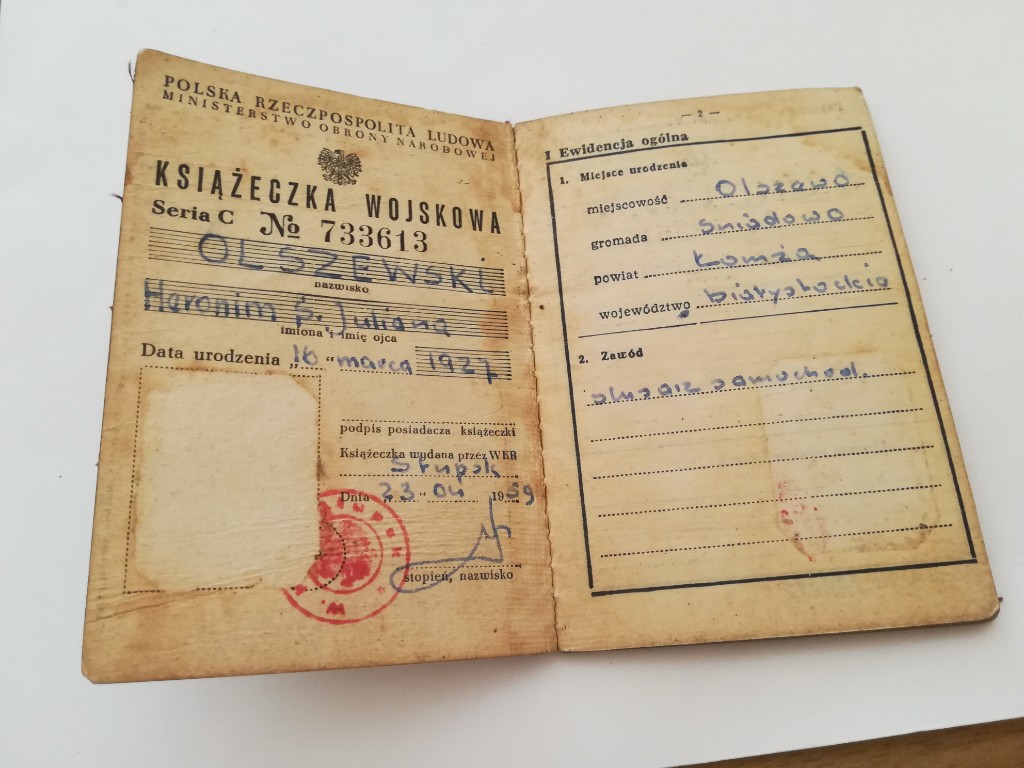 POLSKA RZECZPOSPOLITA LUDOWA
MINISTERSTWO OBRONY NARODOWEJ
KSIĄŻECZKA WOJSKOWA
Seria C № 733613
OLSZEWSKI
nazwisko
Heronim s. Juliana
imiona i imię ojca
Data urodzenia „16" marca 1927
podpis posiadacza książeczki
Książeczka wydana przez WKR
Słupsk
Dnia „23" 04 1959
stopień, nazwisko
— 2 —
I Ewidencja ogólna
1. Miejsce urodzenia
miejscowość Olszewo
gromada Śniadowo
powiat Łomża
województwo białystockie
2. Zawód
ślusarz samochod.